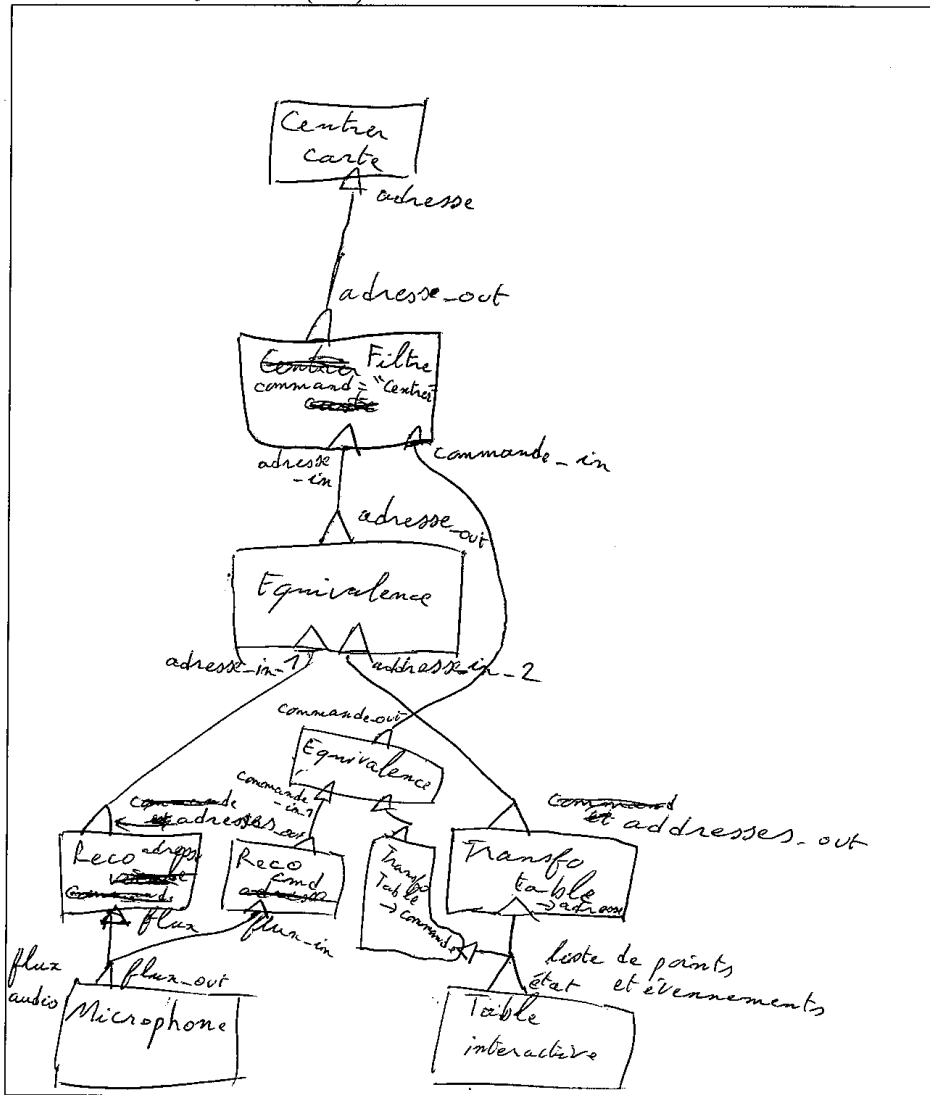 Centrer
carte
adresse
adresse_out
Centrer Filtre
command = "Centrer"
adresse
_in
commande_in
adresse_out
Equivalence
adresse_in_1
addresse_in_2
commande_out
Equivalence
commande
_in_1
commande
et adresses_out
command
et addresses_out
Reco adresse
command
Reco
cmd
adresse
Transfo
Table
→ commande
Transfo
table
→ adresse
flux
flux_in
flux
audio
flux_out
liste de points
état et évennements
Microphone
Table
interactive